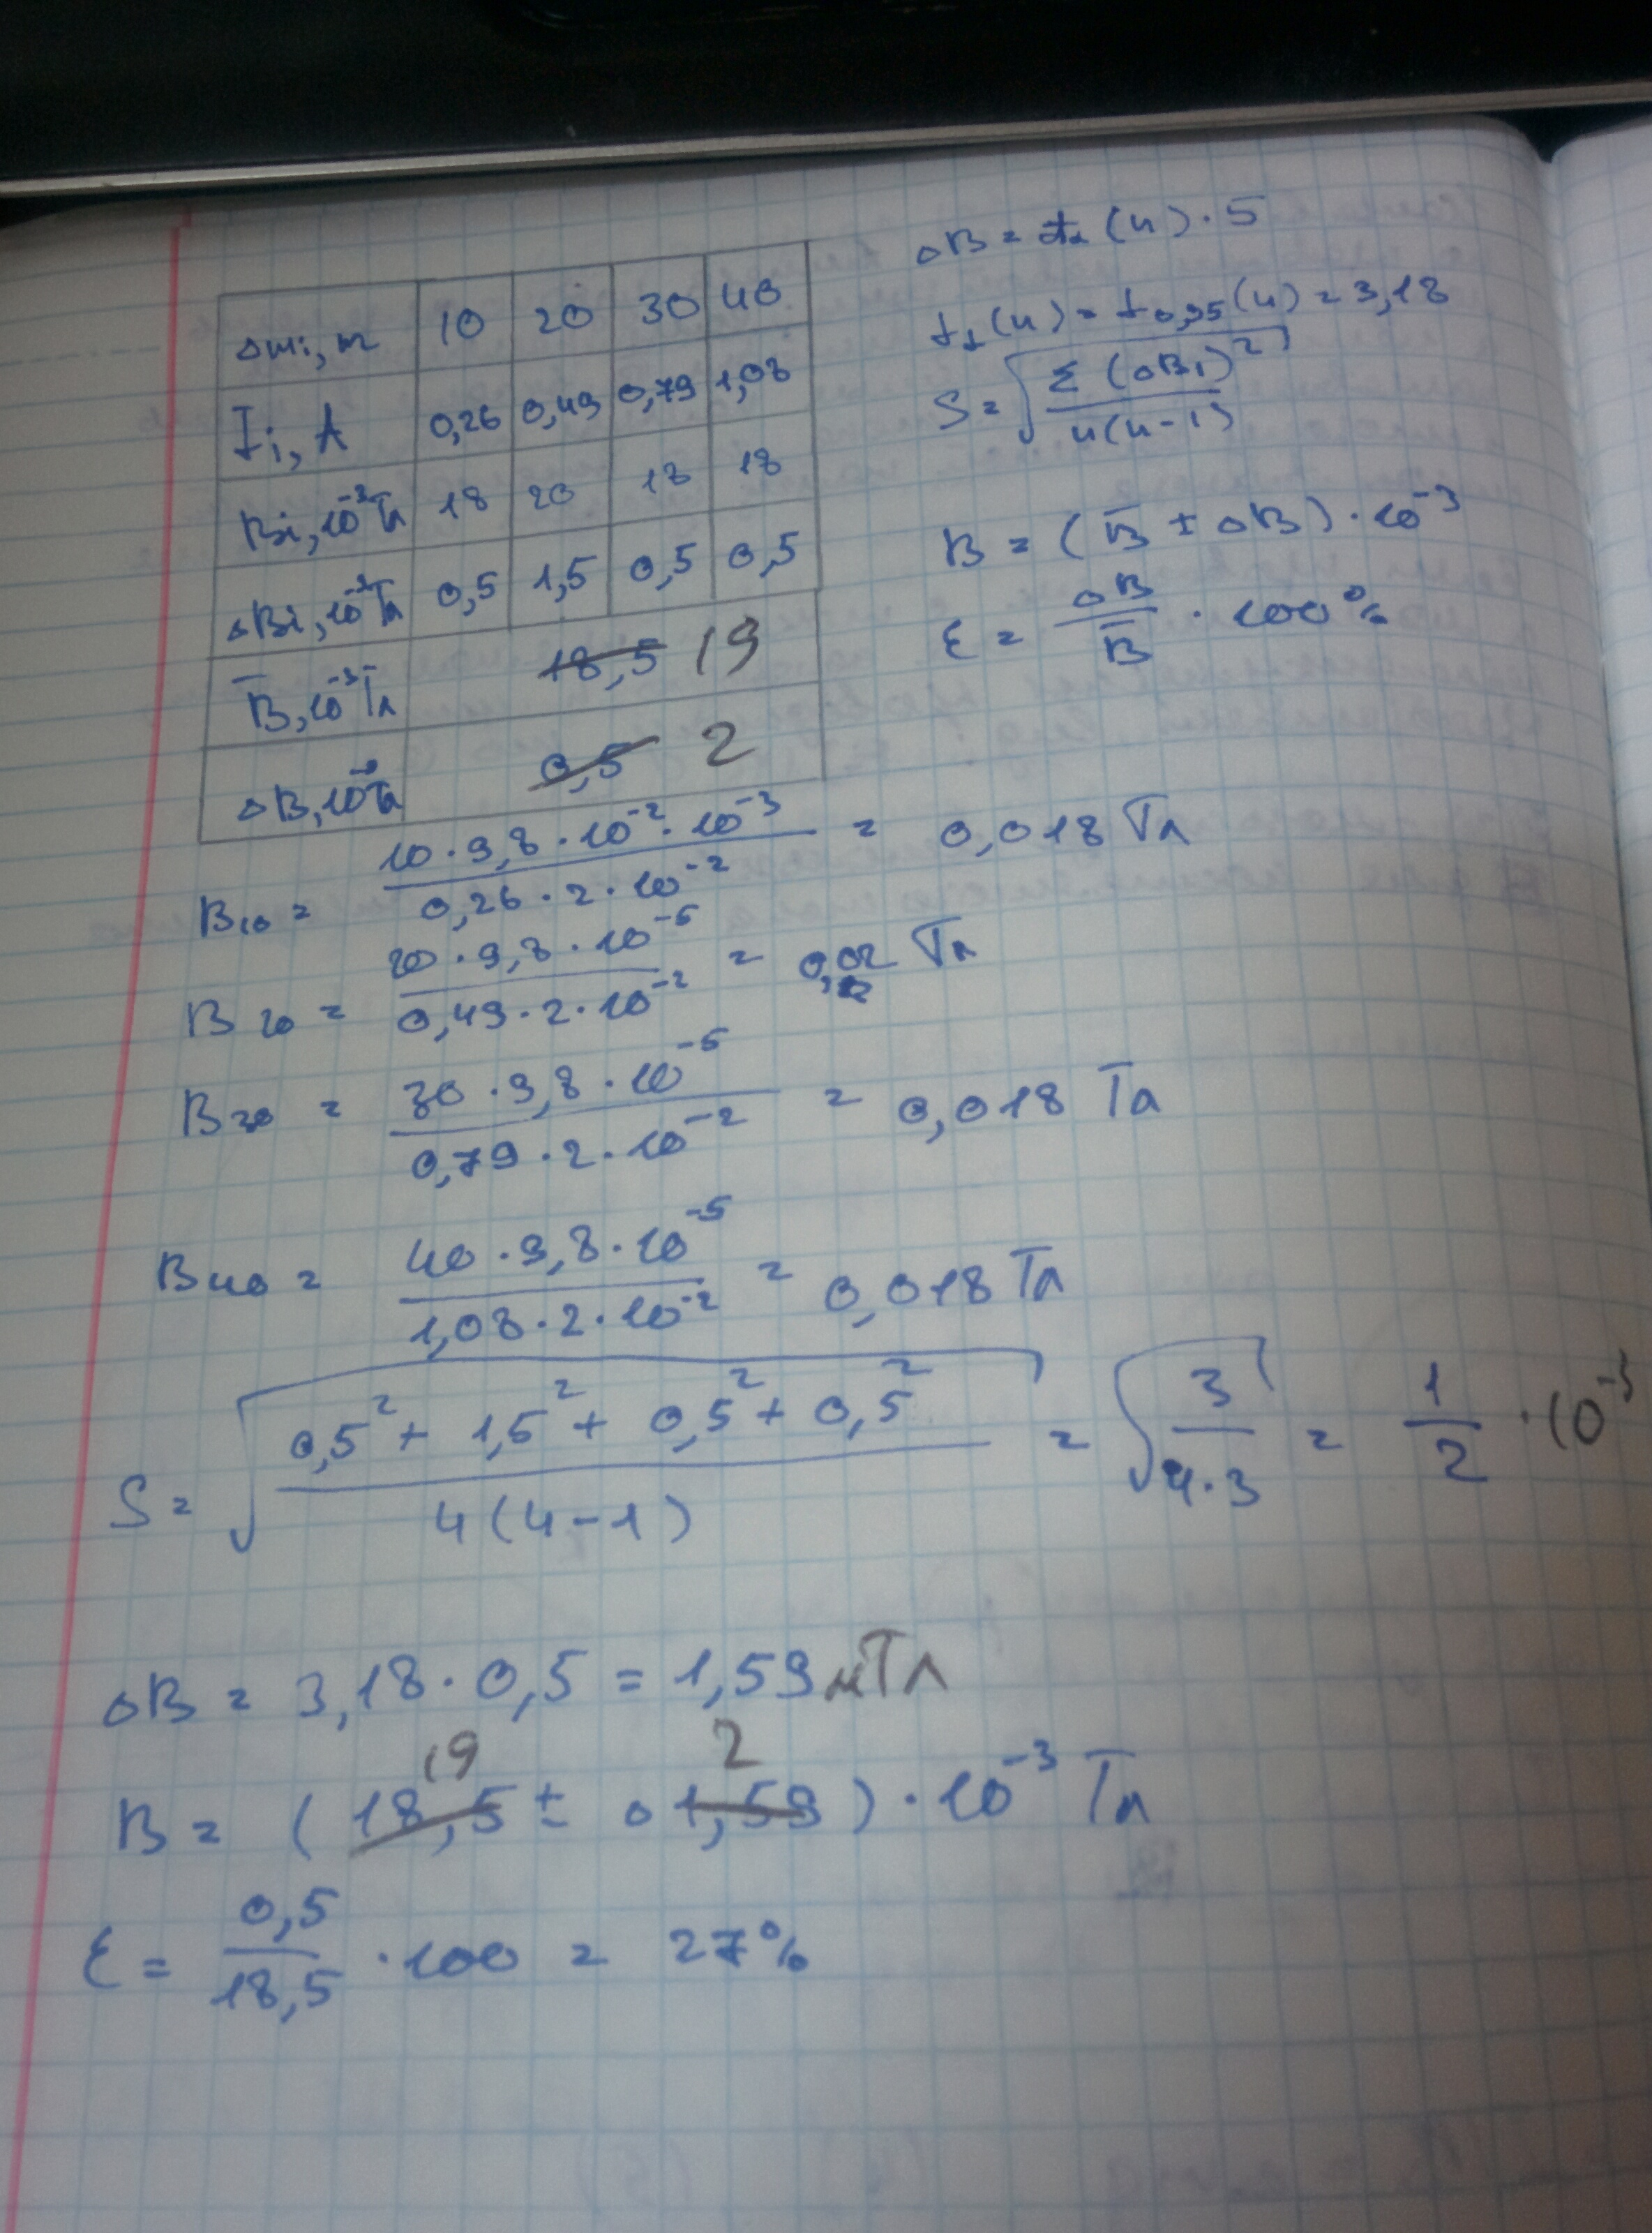 Δmi, г 10 20 30 40
Ii, А 0,26 0,49 0,79 1,08
Bi, 10⁻³Тл 18 20 18 18
ΔBi, 10⁻³Тл 0,5 1,5 0,5 0,5
B̄, 10⁻³Тл 18,5 19
ΔB, 10⁻³Тл 0,5 2
ΔB = tα (n) · S
tα (n) = t0,95 (4) = 3,18
S = √(Σ (ΔBi)² / n(n-1))
B = (B̄ ± ΔB) · 10⁻³
ε = ΔB / B̄ · 100%
B10 = 10 · 9,8 · 10⁻² · 10⁻³ / 0,26 · 2 · 10⁻² = 0,018 Тл
B20 = 20 · 9,8 · 10⁻⁵ / 0,49 · 2 · 10⁻² = 0,02 Тл
B30 = 30 · 9,8 · 10⁻⁵ / 0,79 · 2 · 10⁻² = 0,018 Тл
B40 = 40 · 9,8 · 10⁻⁵ / 1,08 · 2 · 10⁻² = 0,018 Тл
S = √(0,5² + 1,5² + 0,5² + 0,5² / 4(4-1)) = √(3 / 4·3) = 1/2 · 10⁻³
ΔB = 3,18 · 0,5 = 1,59 мТл
19 2
B = (18,5 ± 1,59) · 10⁻³ Тл
ε = 0,5 / 18,5 · 100 = 27%